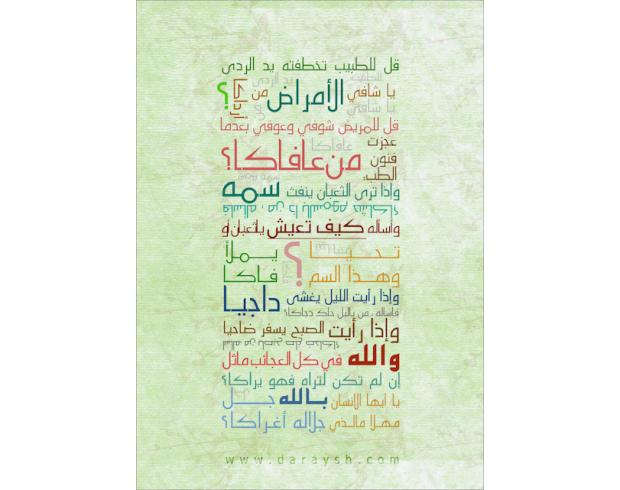 قل للطبيب تخطفته يد الردى
يا شافي الأمراض من أرداكا؟
قل للمريض شوفي وعوفي بعدما
عجزت فنون الطب: من عافاكا؟
وإذا ترى الثعبان ينفث سمه
فاسأله ، من ذا بالسموم حشاكا؟
واسأله كيف تعيش ياثعبان او
تحيا وهذا السم يملأ فاكا ؟
وإذا رأيت الليل يغشى داجيا
فاسأله ، من ياليل حاك دجاكا؟
وإذا رأيت الصبح يسفر ضاحيا
والله في كل العجائب ماثل
إن لم تكن لتراه فهو يراكا؟
يا أيها الانسان
مهلا مالذي بالله جل جلاله أغراكا؟
www.daraysh.com